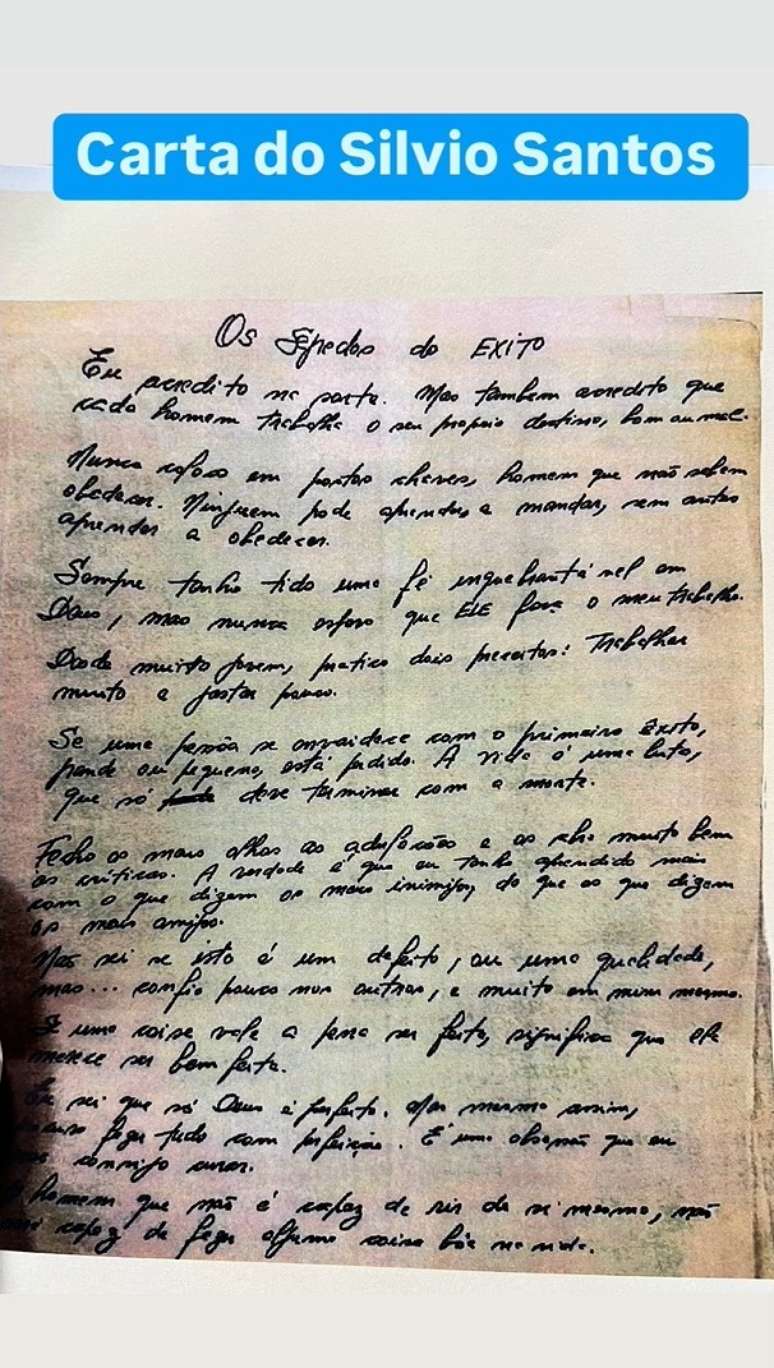 Carta do Silvio Santos
Os Segredos do EXITO
Eu acredito na sorte. Mas também acredito que
cada homem trabalha o seu proprio destino, bom ou mal.
Nunca coloco em postos chaves, homem que não sabem
obedecer. Ninguem pode aprender a mandar, sem antes
aprender a obedecer.
Sempre tenho tido uma fé inquebrantável em
Deus, mas nunca espero que ELE faça o meu trabalho.
Desde muito jovem, pratico dois preceitos: Trabalhar
muito e gastar pouco.
Se uma pessôa se envaidece com o primeiro êxito,
grande ou pequeno, está perdido. A vida é uma luta,
que só deve terminar com a morte.
Fecho os meus olhos as adulações e os abro muito bem
as críticas. A verdade é que eu tenho aprendido mais
com o que dizem os meus inimigos, do que ao que dizem
os meus amigos.
Não sei se isto é um defeito, ou uma qualidade,
mas... confio pouco nos outros, e muito em mim mesmo.
uma coisa vale a pena ser feita, significa que ela
merece ser bem feita.
Eu sei que só Deus é perfeito. Mas mesmo assim,
faser tudo com perfeição. É uma obsessão que eu
não consigo curar.
homem que não é capaz de rir de si mesmo, não
capaz de fazer alguma coisa bôa na vida.